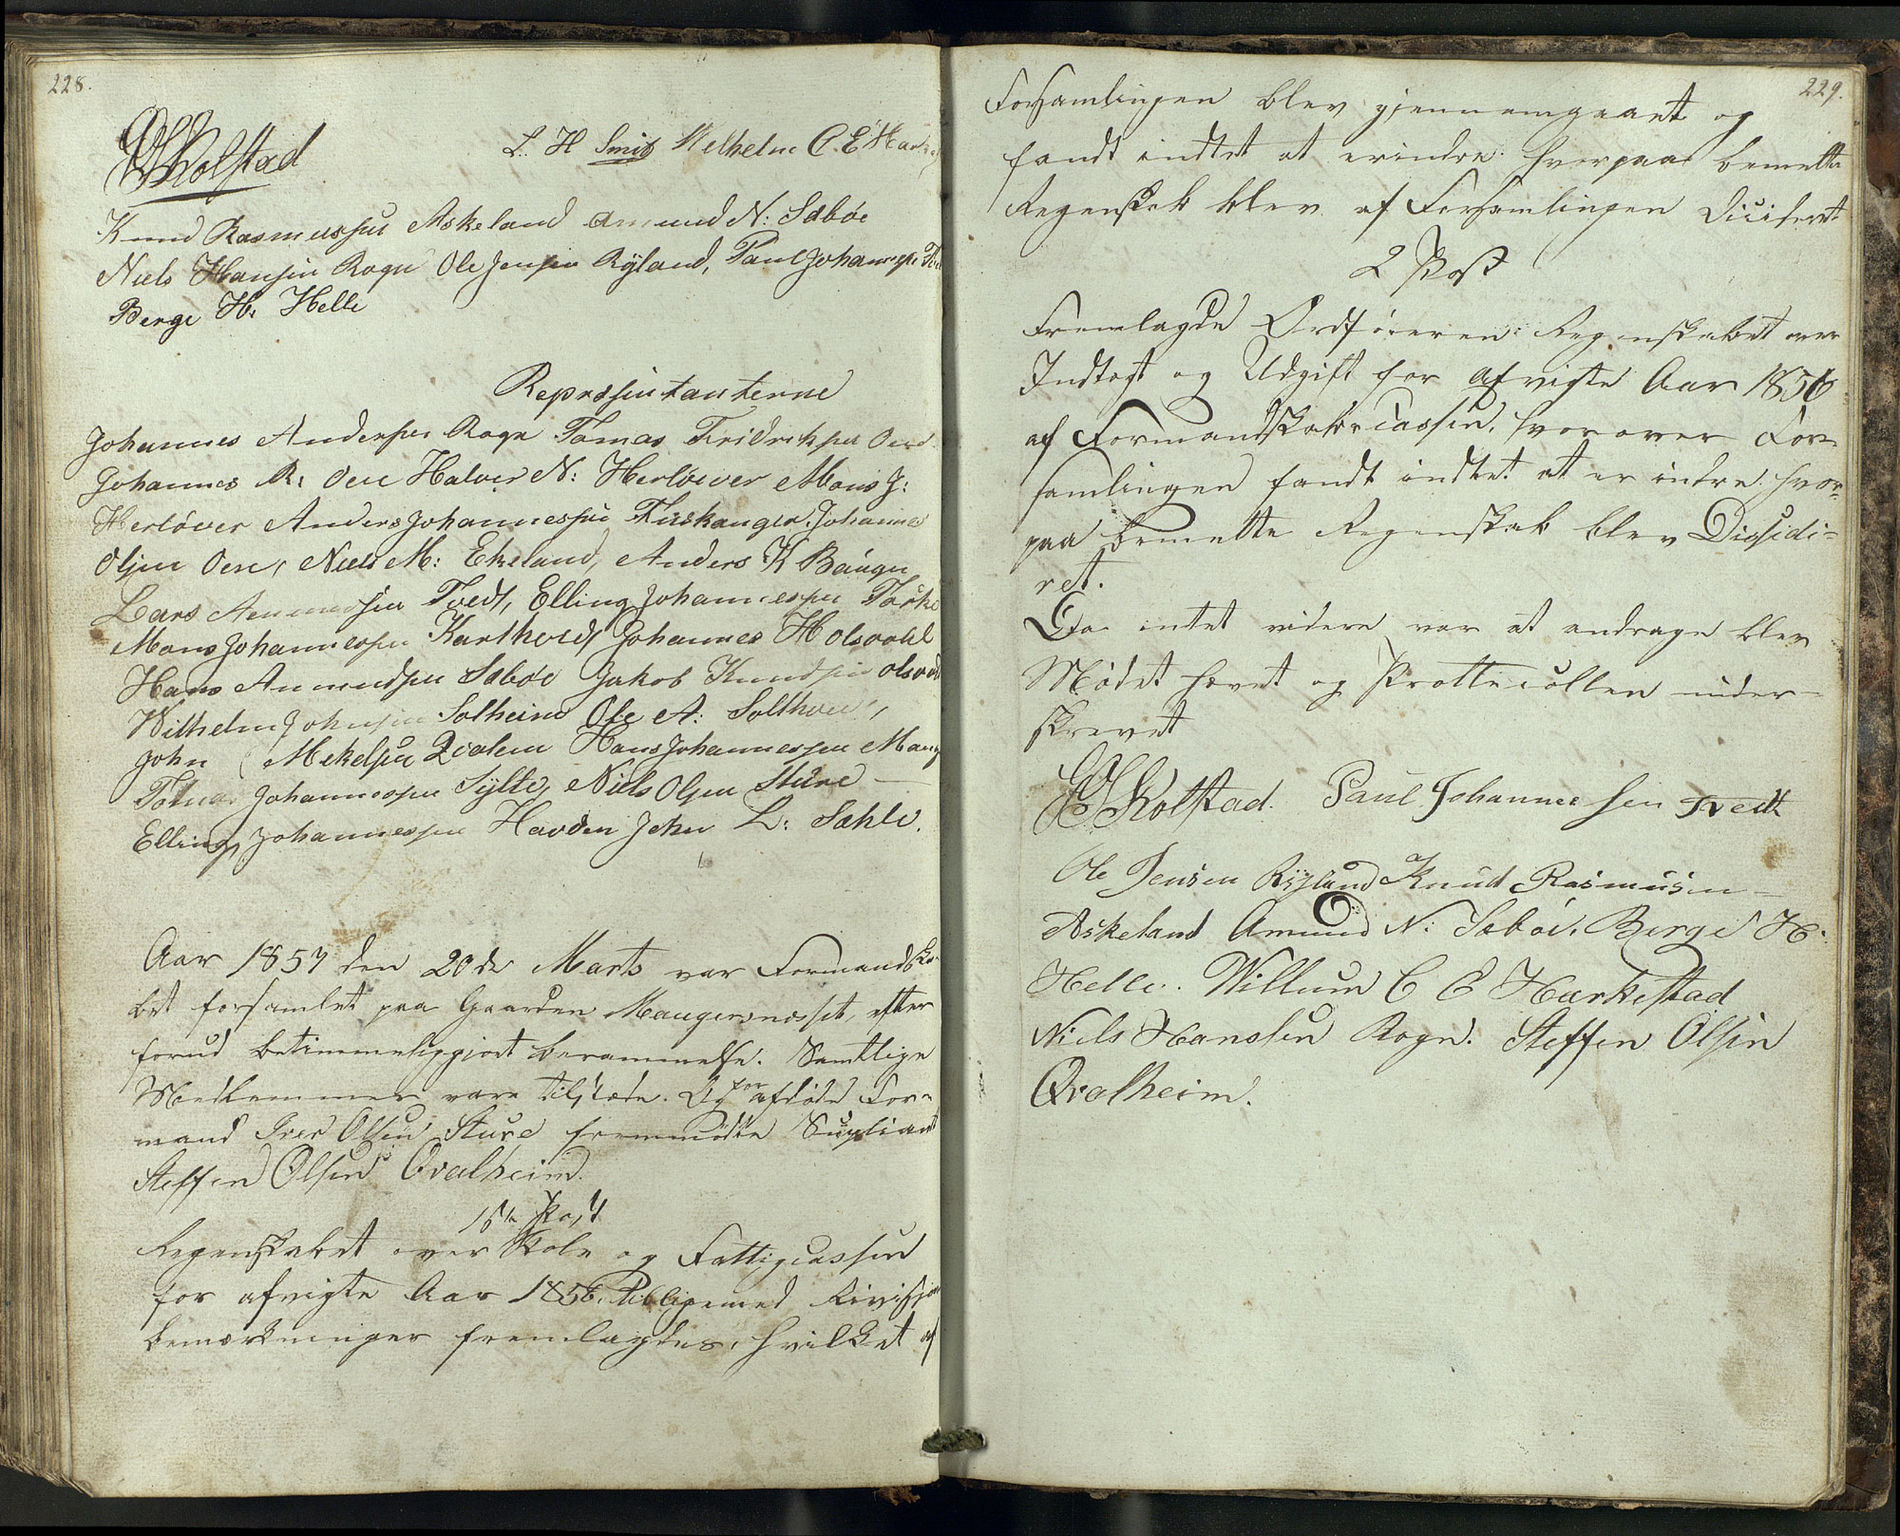 228.
Kolstad
L. H Smit Welhelm C. E Hark
Knud Rasmussen Askeland Amund N: Sæbøe
Niels Hansen Rogn Ole Jensen Ryland, Paul Johannessen
Berge H: Helle
Repræsentanterne
Johannes Andersen Rogn Tomas Fridriksen Oen
Johannes R: Oen Halver N: Herløever Mons J:
Herløever Anders Johannessen Fieskanger Johannes
Olsen Oen, Niels M: Ekeland, Anders K Baugn
Lars Tvedt, Elling Johannessen
Mons Johannessen Karthveds Johannes H olsvold
Hans Amundsen Sæbøe Jakob Knudsen olsvold
Wilhelm Johnsen Solheim Ole A: Solthveed,
John Mekelsen Qvalem Hans Johannessen Mang
Tomas Johannessen Sylte, Niels Olsen Sture
Elling Johannessen Havden John L: Sæhle.
Aar 1857 den 20de Marts var Formandska-
bet forsamlet paa Gaarden Maugersnæsset, efter
forud betimmeliggjort berammelse. Samtlige
Medlemmer vare tilstæde. Og for afdøde For-
mand Iver Olsen Sture fremmødte Supliant
Steffen Olsen Qvalheim.
1ste Post
Regenskabet over Skole og Fattigcassen
for afvigte Aar 1856, tilligemed Revisjons
bemærkninger fremlagdes, hvilket af
229.
Forsamlingen blev gjennemgaaet og
fandt indtet at erindre. hvorpaa bemelte
Regenskab blev af Forsamlingen Diciseret
2 Post
Fremlagde Ordføreren: Regenskabet over
Indtægt og Udgift for afvigte Aar 1856
af Formandskabscassen, hvorover For-
samlingen fandt indtet at erindre. hvor-
paa bemelte Regenskab blev Diesidi-
ret.
Da intet videre var at andrage blev
Mødet hævet og Prottecollen under-
skrevet
Kolstad. Paul Johannessen Tvedt
Ole Jensen Ryland Knud Rasmusen
Askeland Amund N: Sæbøe. Berge H:
Helle. Willum C E Harkestad
Niels Hanssen Rogn. Steffen Olsen
Qvalheim.